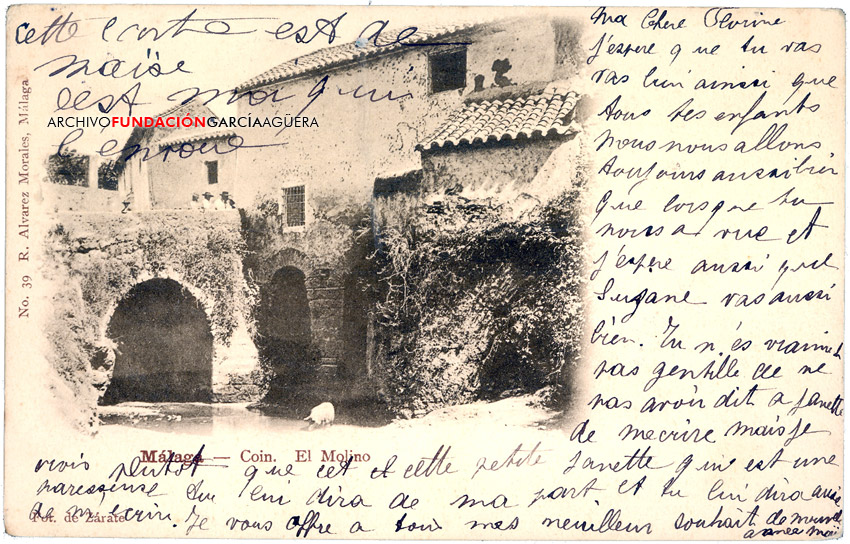 Cette carte est de
maïse
c'est ma qui
l'envoie
ARCHIVOFUNDACIÓNGARCÍAAGÜERA
No. 39 R. Alvarez Morales, Málaga
Ma Chere
j'espere que tu vas
vas bien ainsi que
tous tes enfants
nous nous allons
toujours aussi bien
que lorsque tu
nous a vue et
j'espere aussi que
Suzane vas aussi
bien. Tu n'és vraiment
pas gentille de ne
pas avoir dit a Janette
de mecrire mais je
Málaga — Coin. El Molino
vois plutot que cet et cette petite Janette qui est une
paresseuse tu lui dira de ma part et tu lui dira aussi
de m'ecrire. Je vous offre a tous mes meilleur souhait de nouvel
annee
Fot. de Zárate